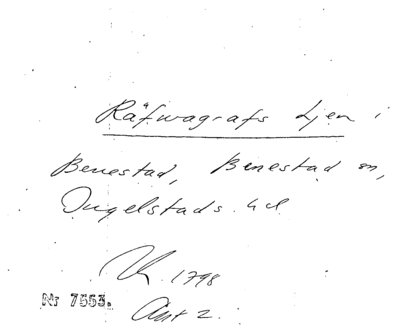 Räfwagrafs Ljen i
Benestad, Benestad sn,
Ingelstads hd
1798
Nr 7553.
Akt 2.